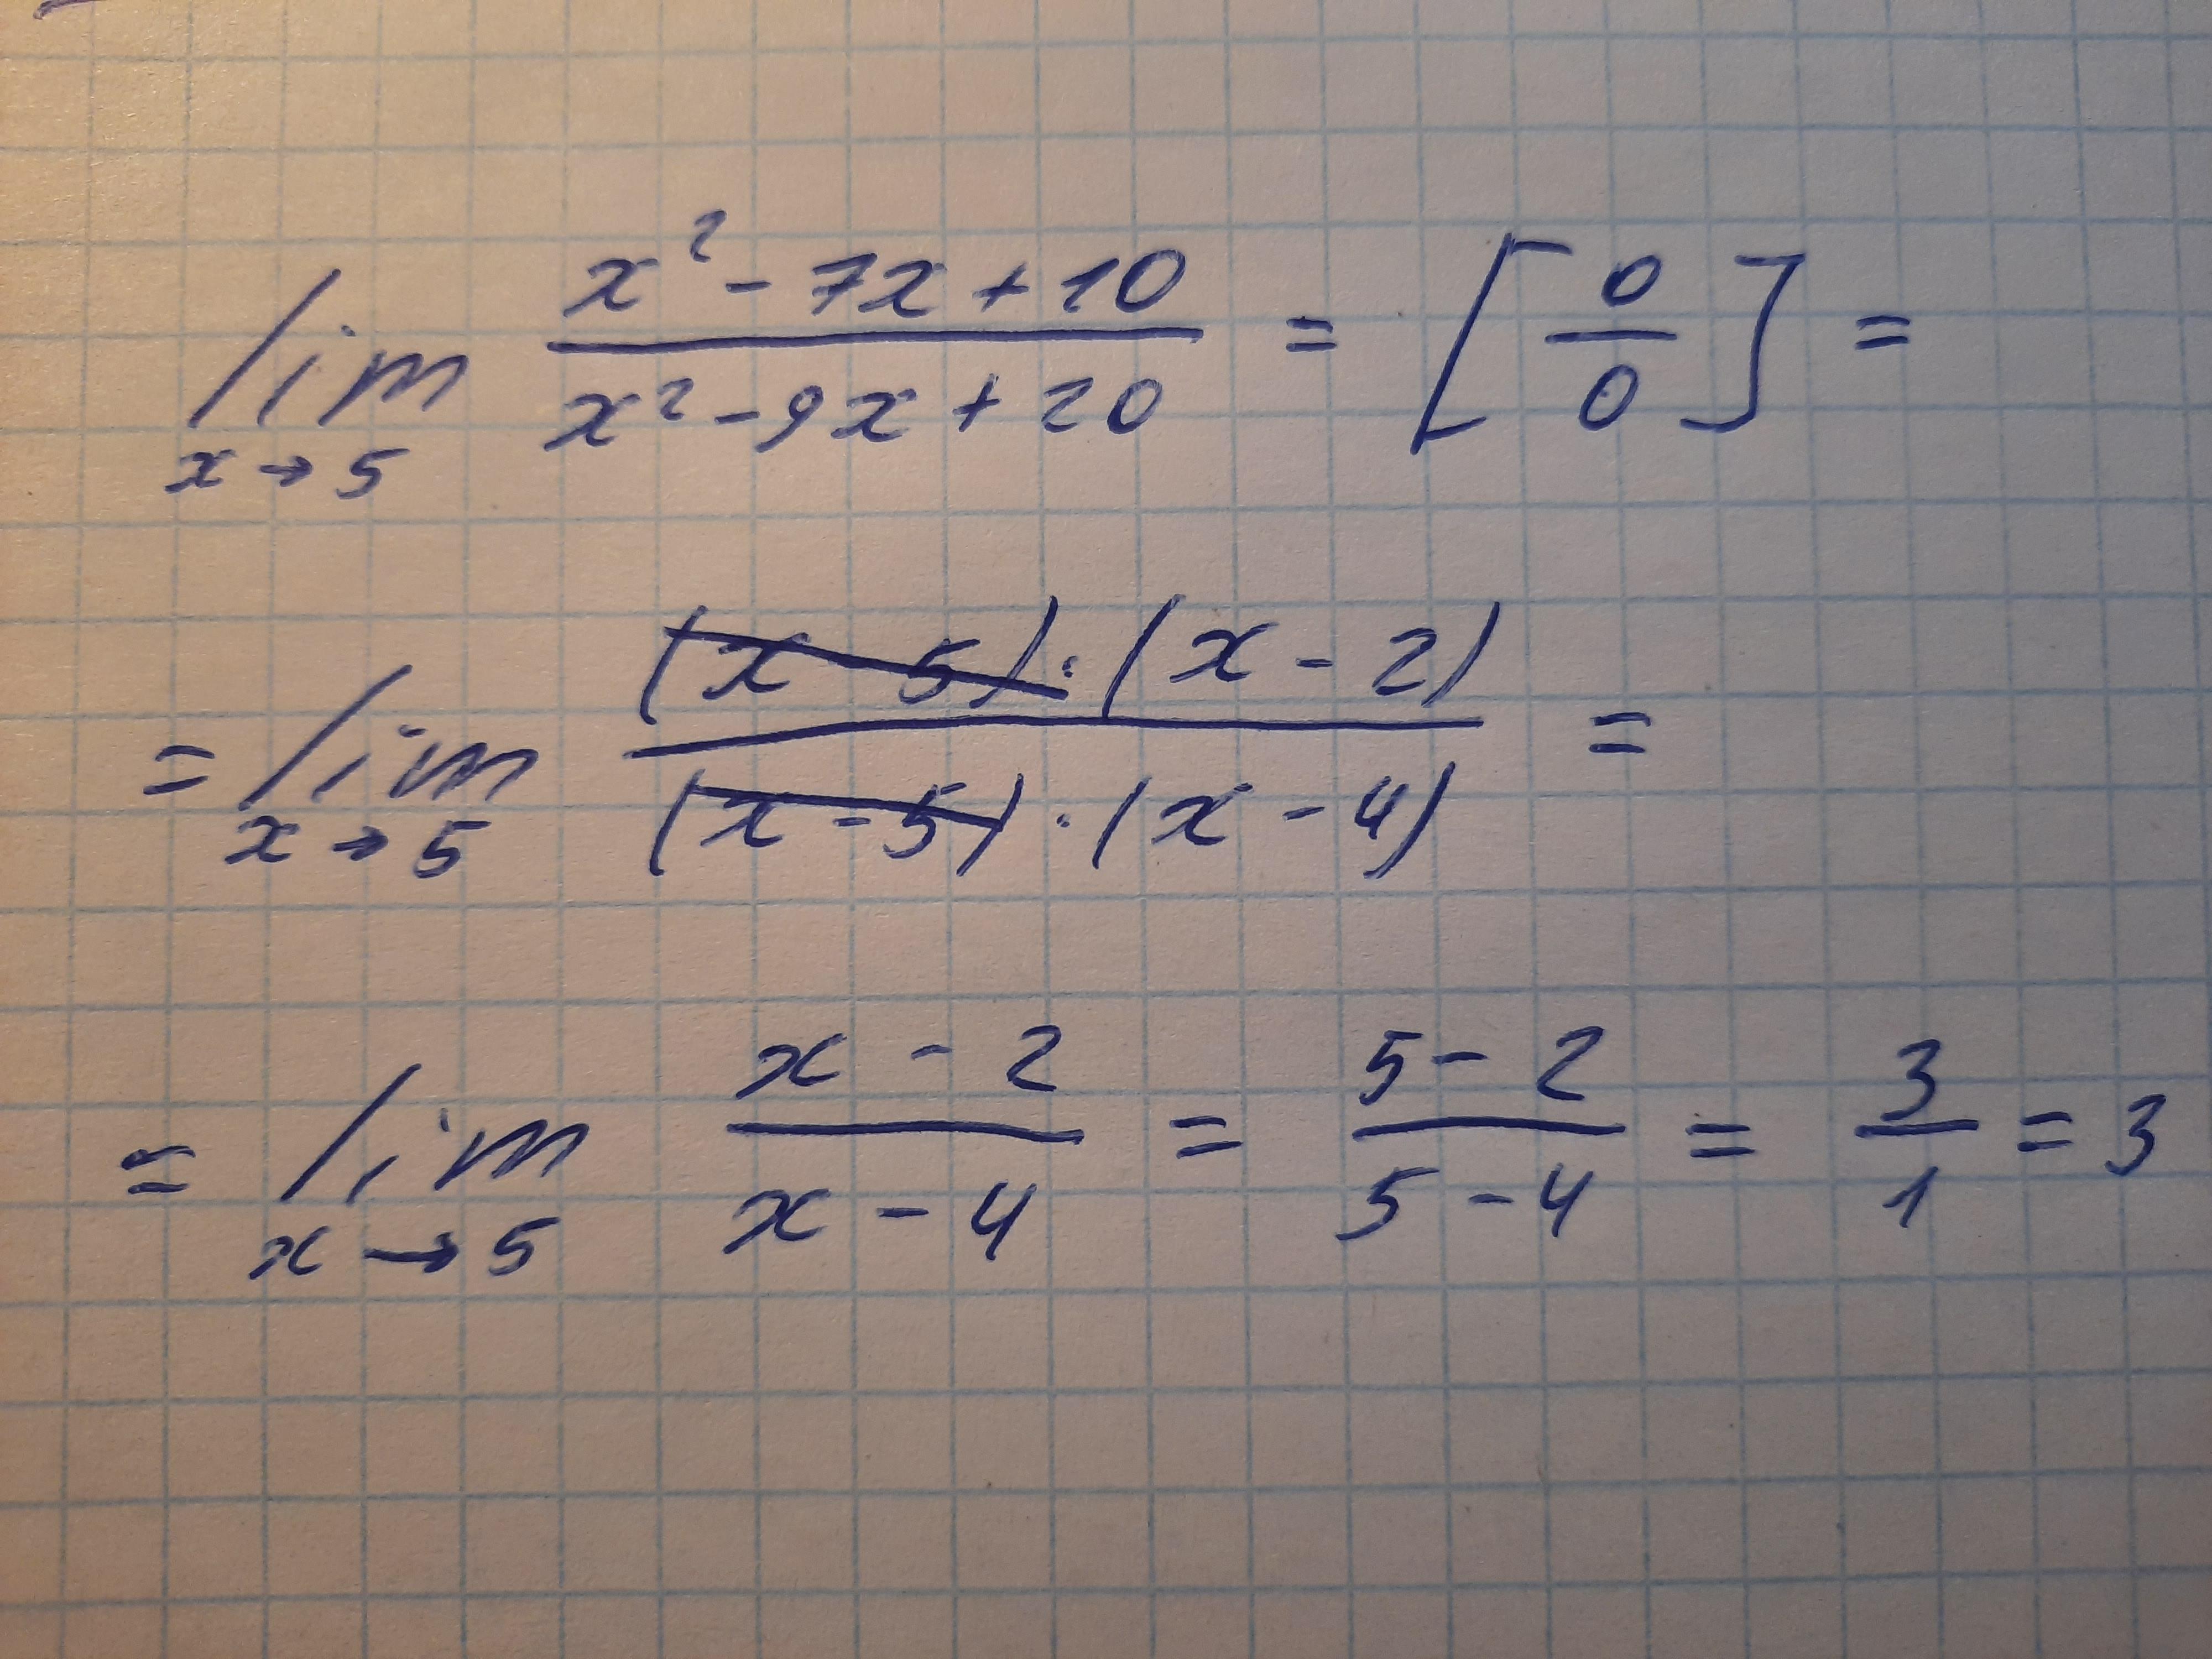 lim x→5 (x² - 7x + 10)/(x² - 9x + 20) = [0/0] =
= lim x→5 ((x - 5) · (x - 2))/((x - 5) · (x - 4)) =
= lim x→5 (x - 2)/(x - 4) = (5 - 2)/(5 - 4) = 3/1 = 3